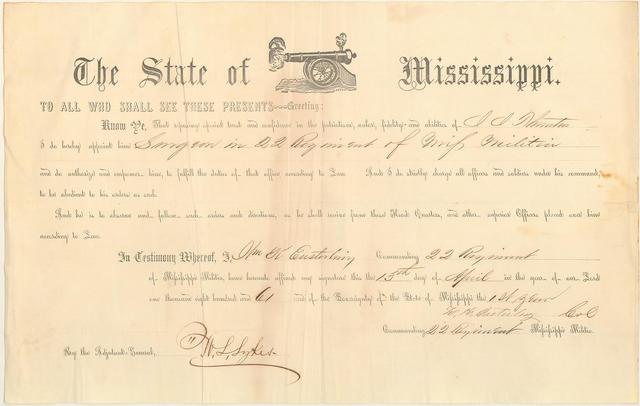 The State of Mississippi.
TO ALL WHO SHALL SEE THESE PRESENTS—Greeting:
Know Ye, That reposing special trust and confidence in the patriotism, valor, fidelity and abilities of
I do hereby appoint him Surgeon in 22 Regiment of Miss Militia
and do authorize and empower him, to fulfill the duties of that office according to Law. And I do strictly charge all officers and soldiers under his command,
to be obedient to his orders as such.
And he is to observe and follow such orders and directions, as he shall receive from these Head Quarters, and other superior Officers placed over him
according to Law.
In Testimony Whereof, I, Wm K Easterling Commanding 22 Regiment
of Mississippi Militia, have hereunto affixed my signature this the 15th day of April in the year of our Lord
one thousand eight hundred and 61 and of the Sovereignty of the State of Mississippi the 1st year
W. K. Easterling Col
Commanding 22 Regiment Mississippi Militia.
By the Adjutant General, W. L. Sykes